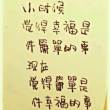 小时候
覺得幸福是
件簡單的事
现在
覺得簡單是
件幸福的事